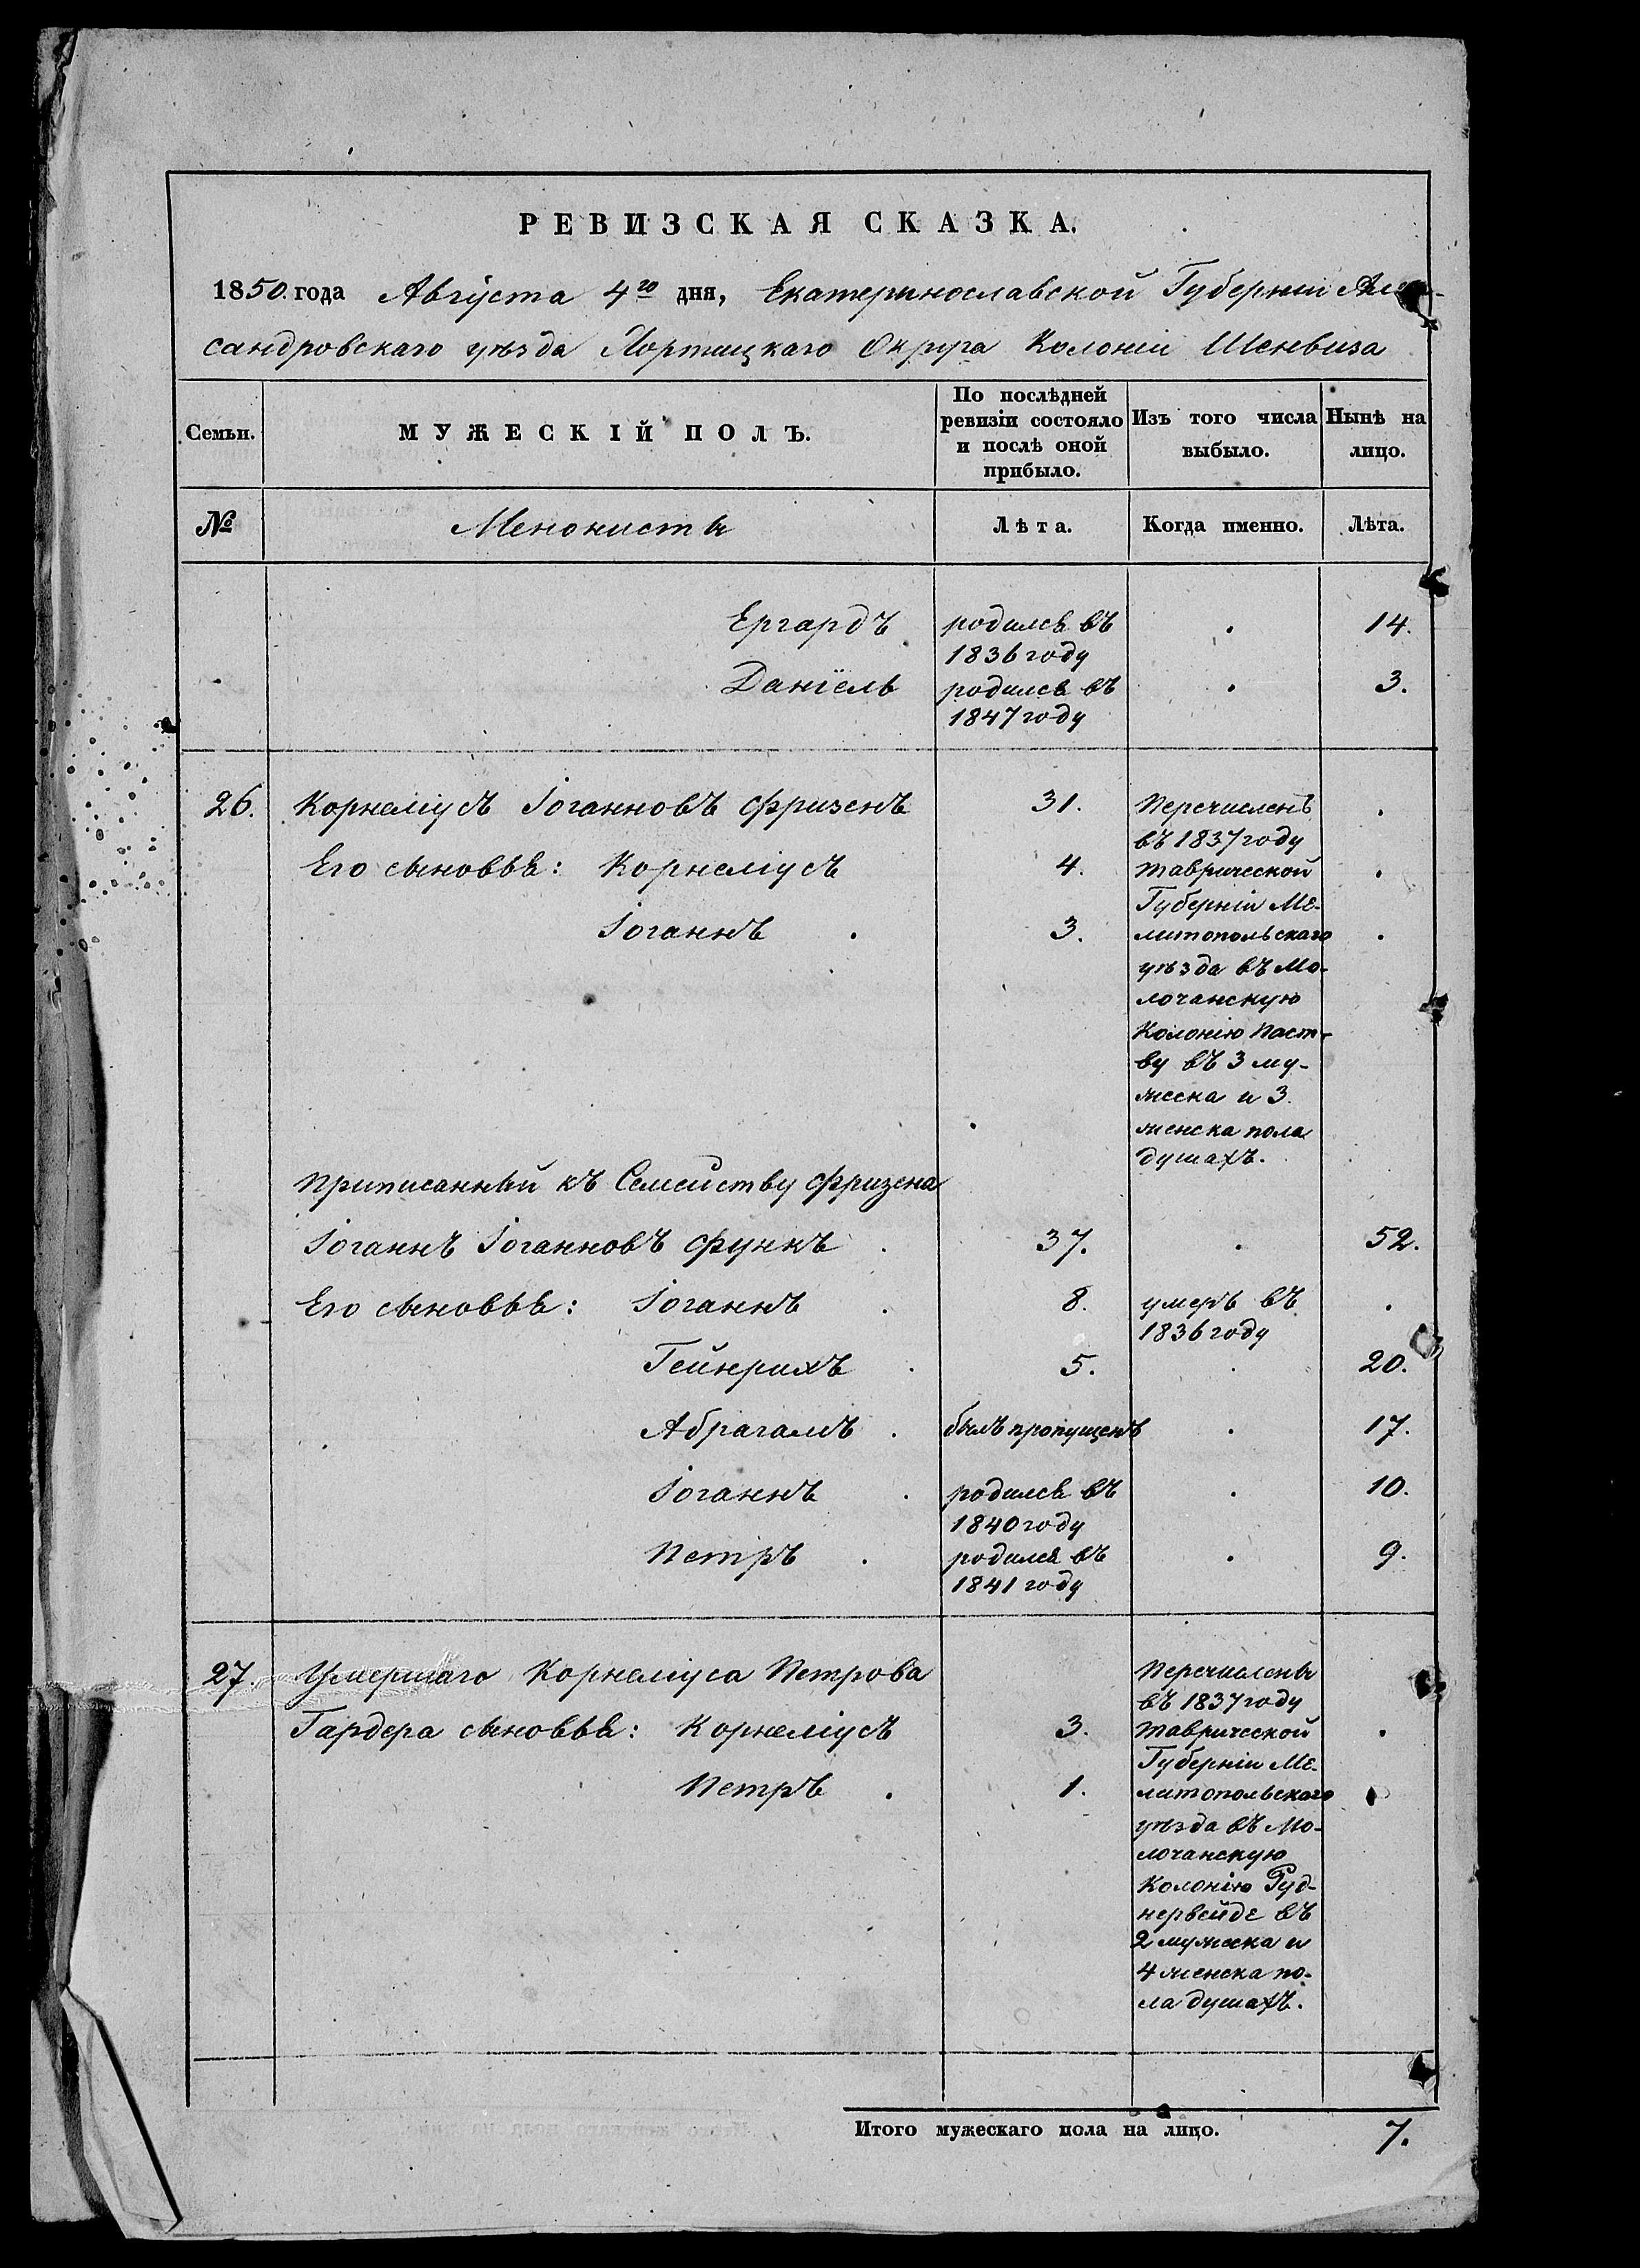 РЕВИЗСКАЯ СКАЗКА.
1850. года Августа 4го дня, Екатеринославской Губерніи
сандровскаго уѣзда Хортицкаго Округа Колоніи Шенвиза
Семьи. МУЖЕСКІЙ ПОЛЪ. По послѣдней ревизіи состояло и послѣ оной прибыло. Изъ того числа выбыло. Нынѣ на лицо.
№ Менонисты Лѣта. Когда именно. Лѣта.
Ергардъ родился въ . 14.
1836 году
Даніель родился въ . 3.
1847 году
26. Корнеліусъ Іоганновъ Фризенъ 31. Перечислены .
въ 1837 году
Его сыновья: Корнеліусъ 4. Таврической .
Губерніи Ме-
Іоганнъ . 3. литопольскаго .
уѣзда въ Мо-
лочанскую
Колонію Паст-
ву въ 3 му-
жеска и 3.
женска пола
душахъ.
Приписанный къ Семейству Фризена
Іоганнъ Іоганновъ Функъ . 37. . 52.
Его сыновья: Іоганнъ . 8. умеръ въ .
1836 году
Гейнрихъ . 5. . 20.
Абрагамъ . былъ пропущенъ . 17.
Іоганнъ . родился въ . 10.
1840 году
Петръ . родился въ . 9.
1841 году
27. Умершаго Корнеліуса Петрова Перечислены
въ 1837 году
Гардера сыновья: Корнеліусъ 3. Таврической .
Губерніи Ме-
Петръ . 1. литопольскаго .
уѣзда въ Мо-
лочанскую
Колонію Руд-
нервейде въ
2 мужеска и
4 женска по-
ла душахъ.
Итого мужескаго пола на лицо. 7.